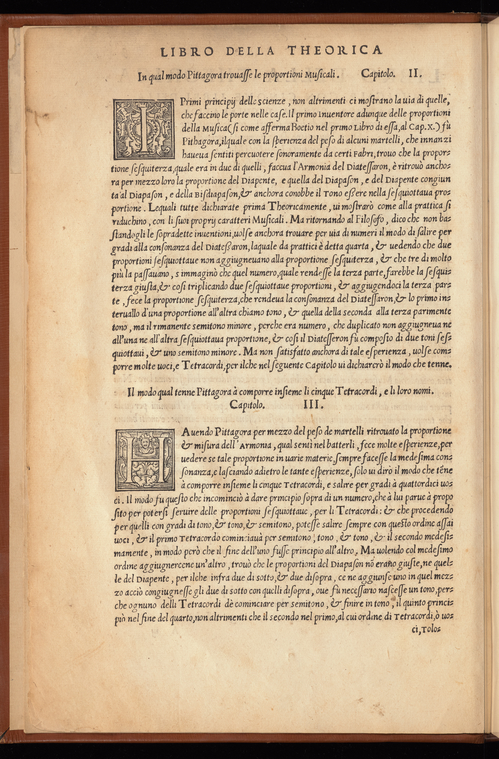 LIBRO DELLA THEORICA
In qual modo Pittagora trouasse le proportioni Musicali. Capitolo. II.
I Primi principij delle scienze, non altrimenti ci mostrano la uia di quelle,
che faccino le porte nelle case. Il primo inuentore adunque delle proportioni
della Musica (si come afferma Boetio nel primo Libro di essa, al Cap. x.) fu
Pithagora, il quale con la sperienza del peso di alcuni martelli, che innanzi
haueua sentiti percuotere sonoramente da certi Fabri, trouo che la propor
tione sesquiterza, quale era in due di quelli, faceua l'Armonia del Diatessaron, è ritrouò ancho
ra per mezzo loro la proportione del Diapente, e quella del Diapason, e del Diapente congiun
ta al Diapason, e della Bisdiapason, & anchora conobbe il Tono essere nella sesquiottaua pro
portione. Lequali tutte dichiarate prima Theoricamente, ui mostrarò come alla prattica si
riduchino, con li suoi proprij caratteri Musicali. Ma ritornando al Filosofo, dico che non bas
standogli le sopradette inuentioni, uolse anchora trouare per uia di numeri il modo di salire per
gradi alla consonanza del Diatessaron, laquale da prattici è detta quarta, & uedendo che due
proportioni sesquiottaue non aggiugneuano alla proportione sesquiterza, & che tre di molto
più la passauano, s'immaginò che quel numero, quale rendesse la terza parte, farebbe la sesquis
terza giusta, & così triplicando due sesquiottaue proportioni, & aggiugendoci la terza pars
te, fece la proportione sesquiterza, che rendeua la consonanza del Diatessaron, & lo primo in-
teruallo d'una proportione all'altra chiamo tono, & quella della seconda alla terza parimente
tono, ma il rimanente semitono minore, perche era numero, che duplicato non aggiugneua ne
all'una ne all'altra sesquiottaua proportione, & così il Diatesseron fu composto di due toni ses
quiottaui, & uno semitono minore. Ma non satisfatto anchora di tale esperienza, uolse coms
porre molte uoci, e Tetracordi, per ilche nel seguente Capitolo ui dichiarerò il modo che tenne.
Il modo qual tenne Pittagora à comporre insieme li cinque Tetracordi, e li loro nomi.
Capitolo. III.
HAuendo Pittagora per mezzo del peso de martelli ritrouato la proportione
& misura dell'Armonia, qual sentì nel batterli, fece molte esperienze, per
uedere se tale proportione in uarie materie, sempre facesse la medesima cons
sonanza, e lasciando adietro le tante esperienze, solo ui dirò il modo che tēne
à comporre insieme li cinque Tetracordi, e salire per gradi à quattordici uos
ci. Il modo fu questo che incominciò à dare principio sopra di un numero, che à lui parue à propo
sito per potersi seruire delle proportioni sesquiottaue, per li Tetracordi: & che procedendo
per quelli con gradi di tono, & tono, & semitono, potesse salire sempre con questo ordine assai
uoci, & il primo Tetracordo cominciaua per semitono, tono, & tono, & il secondo medesi-
mamente, in modo però che il fine dell'uno fusse principio all'altro, Ma uolendo col medesimo
ordine aggiugnercene un'altro, trouò che le proportioni del Diapason nō erano giuste, ne quel-
le del Diapente, per ilche infra due di sotto, & due disopra, ce ne aggiunse uno in quel mez-
zo acciò congiugnesse gli due di sotto con quelli disopra, oue fu necessario nascesse un tono, pers
che ognuno delli Tetracordi dè cominciare per semitono, & finire in tono, il quinto princis
piò nel fine del quarto, non altrimenti che il secondo nel primo, al cui ordine di Tetracordi, ò uos
ci, Tolos